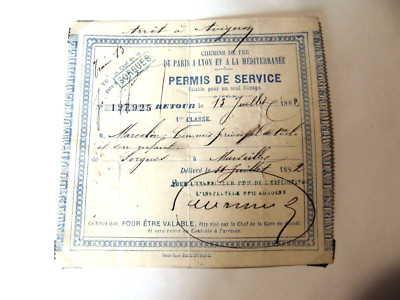 Arrêt à Avignon
CHEMINS DE FER
DE PARIS A LYON ET A LA MÉDITERRANÉE
Train 13
SORGUES
PERMIS DE SERVICE
Valable pour un seul Voyage
N° 197,925 RETOUR le 15 Juillet 1882
1re CLASSE.
M. Marcelon, Commis principal de
et son enfant
de Sorgues à Marseille
Délivré le 11 Juillet 1882
POUR L'INSPECTEUR PPAL DE L'EXPLOITATION
L'INSPECTEUR PPAL ADJOINT
Ce billet doit, POUR ÊTRE VALABLE, être visé par le Chef de la Gare de départ.
Il sera retiré au Contrôle à l'arrivée.